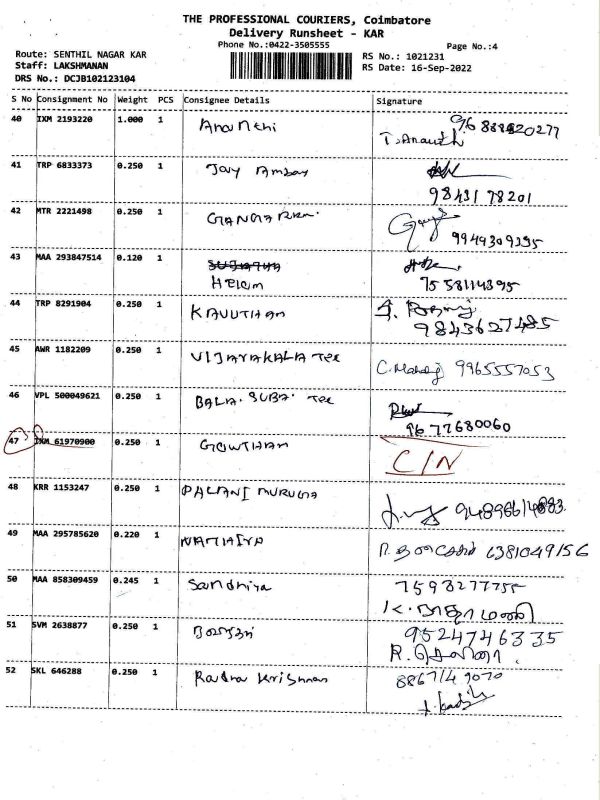 THE PROFESSIONAL COURIERS, Coimbatore
Delivery Runsheet - KAR
Phone No.:0422-3505555
Page No.:4
Route: SENTHIL NAGAR KAR
RS No.: 1021231
Staff: LAKSHMANAN
RS Date: 16-Sep-2022
DRS No.: DCJB102123104
S No Consignment No Weight PCS Consignee Details Signature
40 IXM 2193220 1.000 1 Ananthi
T. Ananth
41 TRP 6833373 0.250 1 Jay Ambay
98431 78201
42 MTR 2221498 0.250 1
9949309395
43 MAA 293847514 0.120 1
Helem 7558114395
44 TRP 8291904 0.250 1 KAVUTHAM
9843627485
45 AWR 1182209 0.250 1 VIJAYAKALA Tex C. Manoj 9965557053
46 VPL 500049621 0.250 1 BALA. SUBA. Tex
9677680060
47 IXM 61970900 0.250 1 GOWTHAM C/N
48 KRR 1153247 0.250 1 PALANI MURUGA
49 MAA 295785620 0.220 1 6381049156
50 MAA 858309459 0.245 1 Sandhiya 7598277755
51 SVM 2638877 0.250 1 9524746335
52 SKL 646288 0.250 1 Radha Krishnan 8867149070